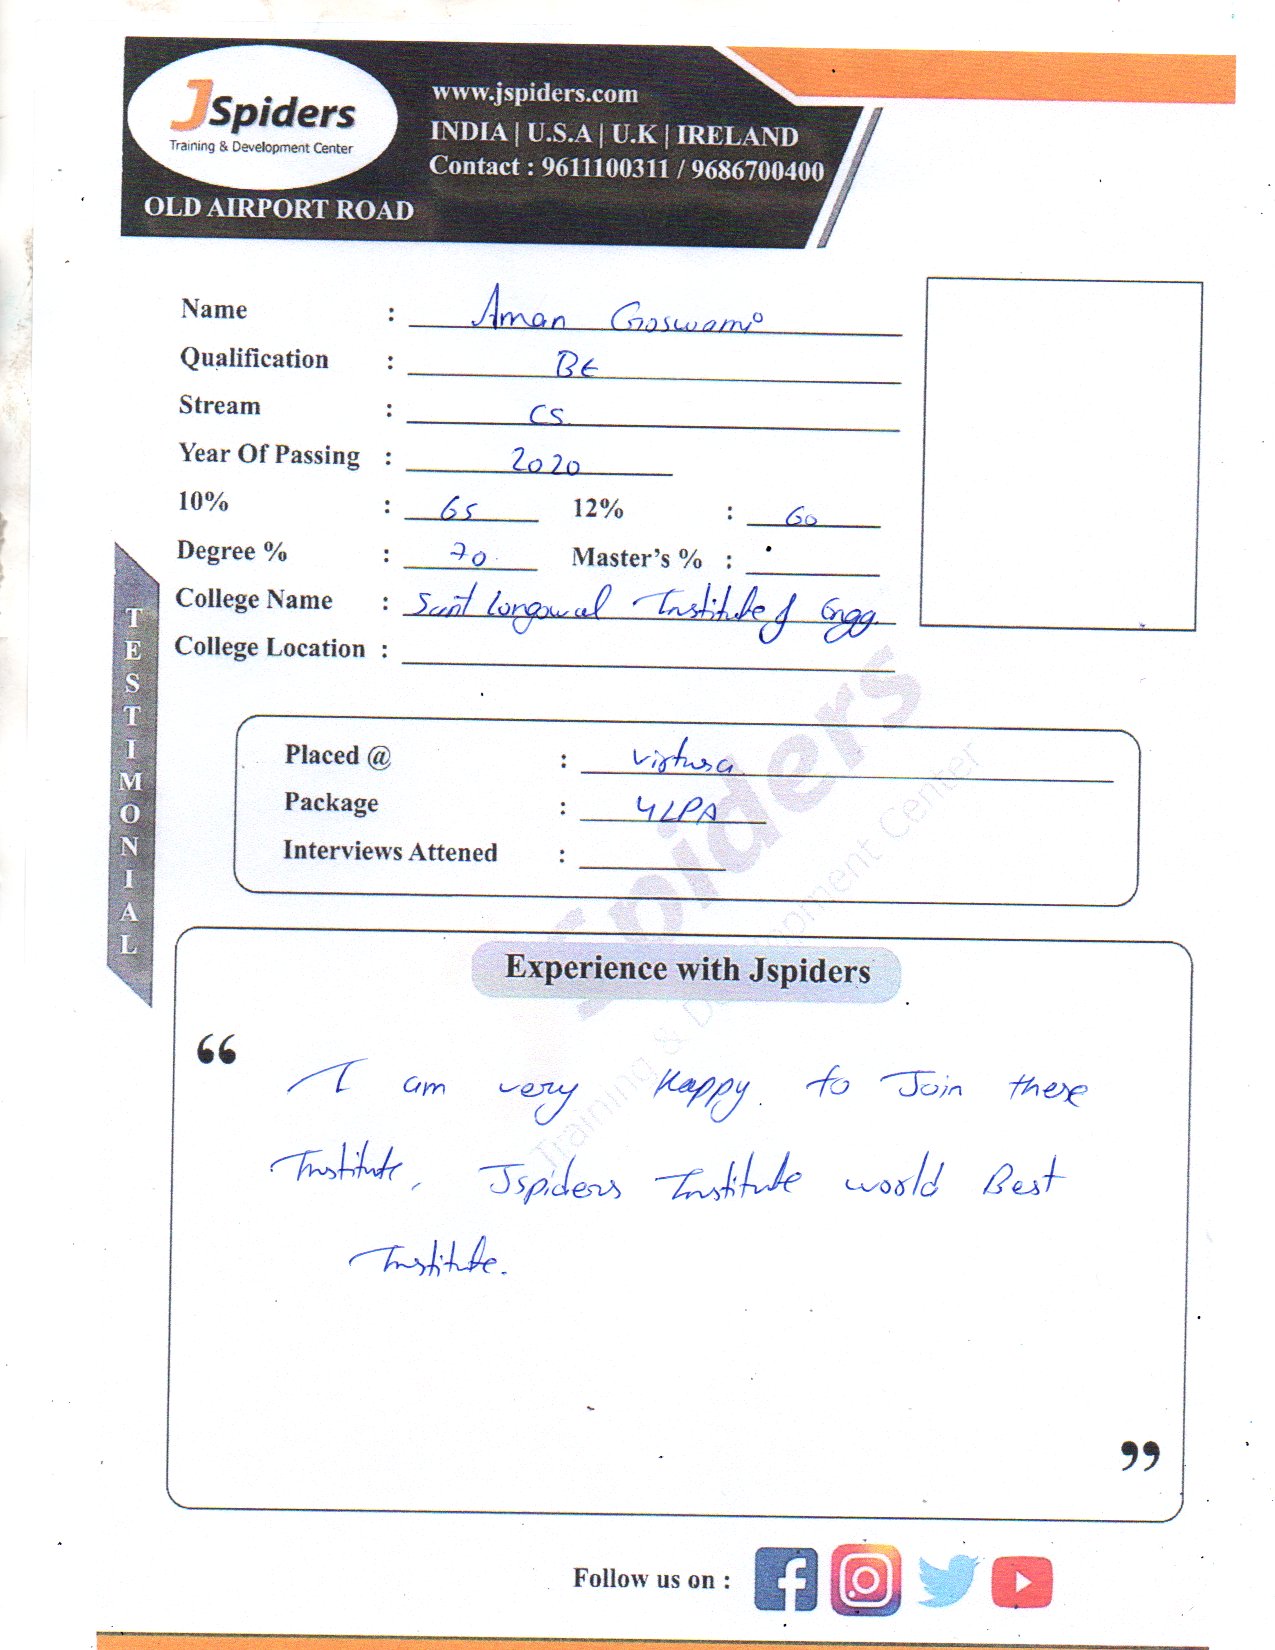 JSpiders
Training & Development Center
OLD AIRPORT ROAD
www.jspiders.com
INDIA | U.S.A | U.K | IRELAND
Contact : 9611100311 / 9686700400
Name : Aman Goswami
Qualification : BE
Stream : CS
Year Of Passing : 2020
10% : 65 12% : 60
Degree % : 70 Master's % :
College Name : Sant Longowal Institute of Engg.
College Location :
TESTIMONIAL
Placed @ : Virtusa
Package : 4LPA
Interviews Attened :
Spiders
Training & Development Center
Experience with Jspiders
“
I am very Happy to Join there
Institute, Jspiders Institute world Best
Institute.
”
Follow us on :